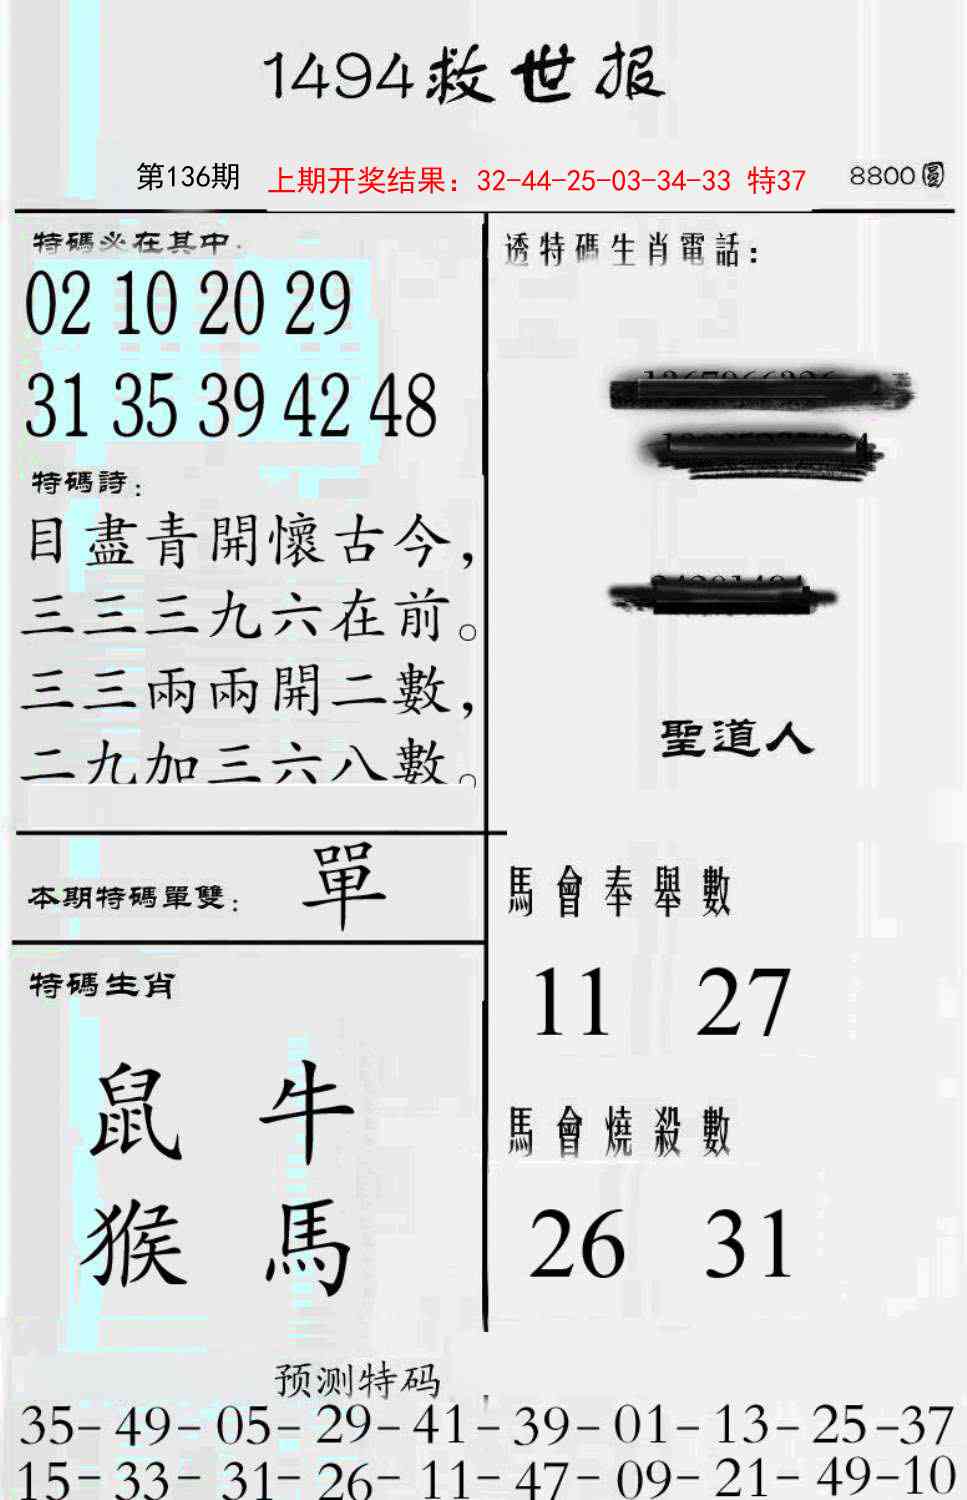 1494救世报
第136期 上期开奖结果：32-44-25-03-34-33 特37 8800圓
特碼必在其中：
02 10 20 29
31 35 39 42 48
特碼詩：
目盡青開懷古今，
三三三九六在前。
三三兩兩開二數，
二九加三六八數。
本期特碼單雙： 單
特碼生肖
鼠 牛
猴 馬
透特碼生肖電話：
聖道人
馬會奉舉數
11 27
馬會燒殺數
26 31
预测特码
35-49-05-29-41-39-01-13-25-37
15-33-31-26-11-47-09-21-49-10